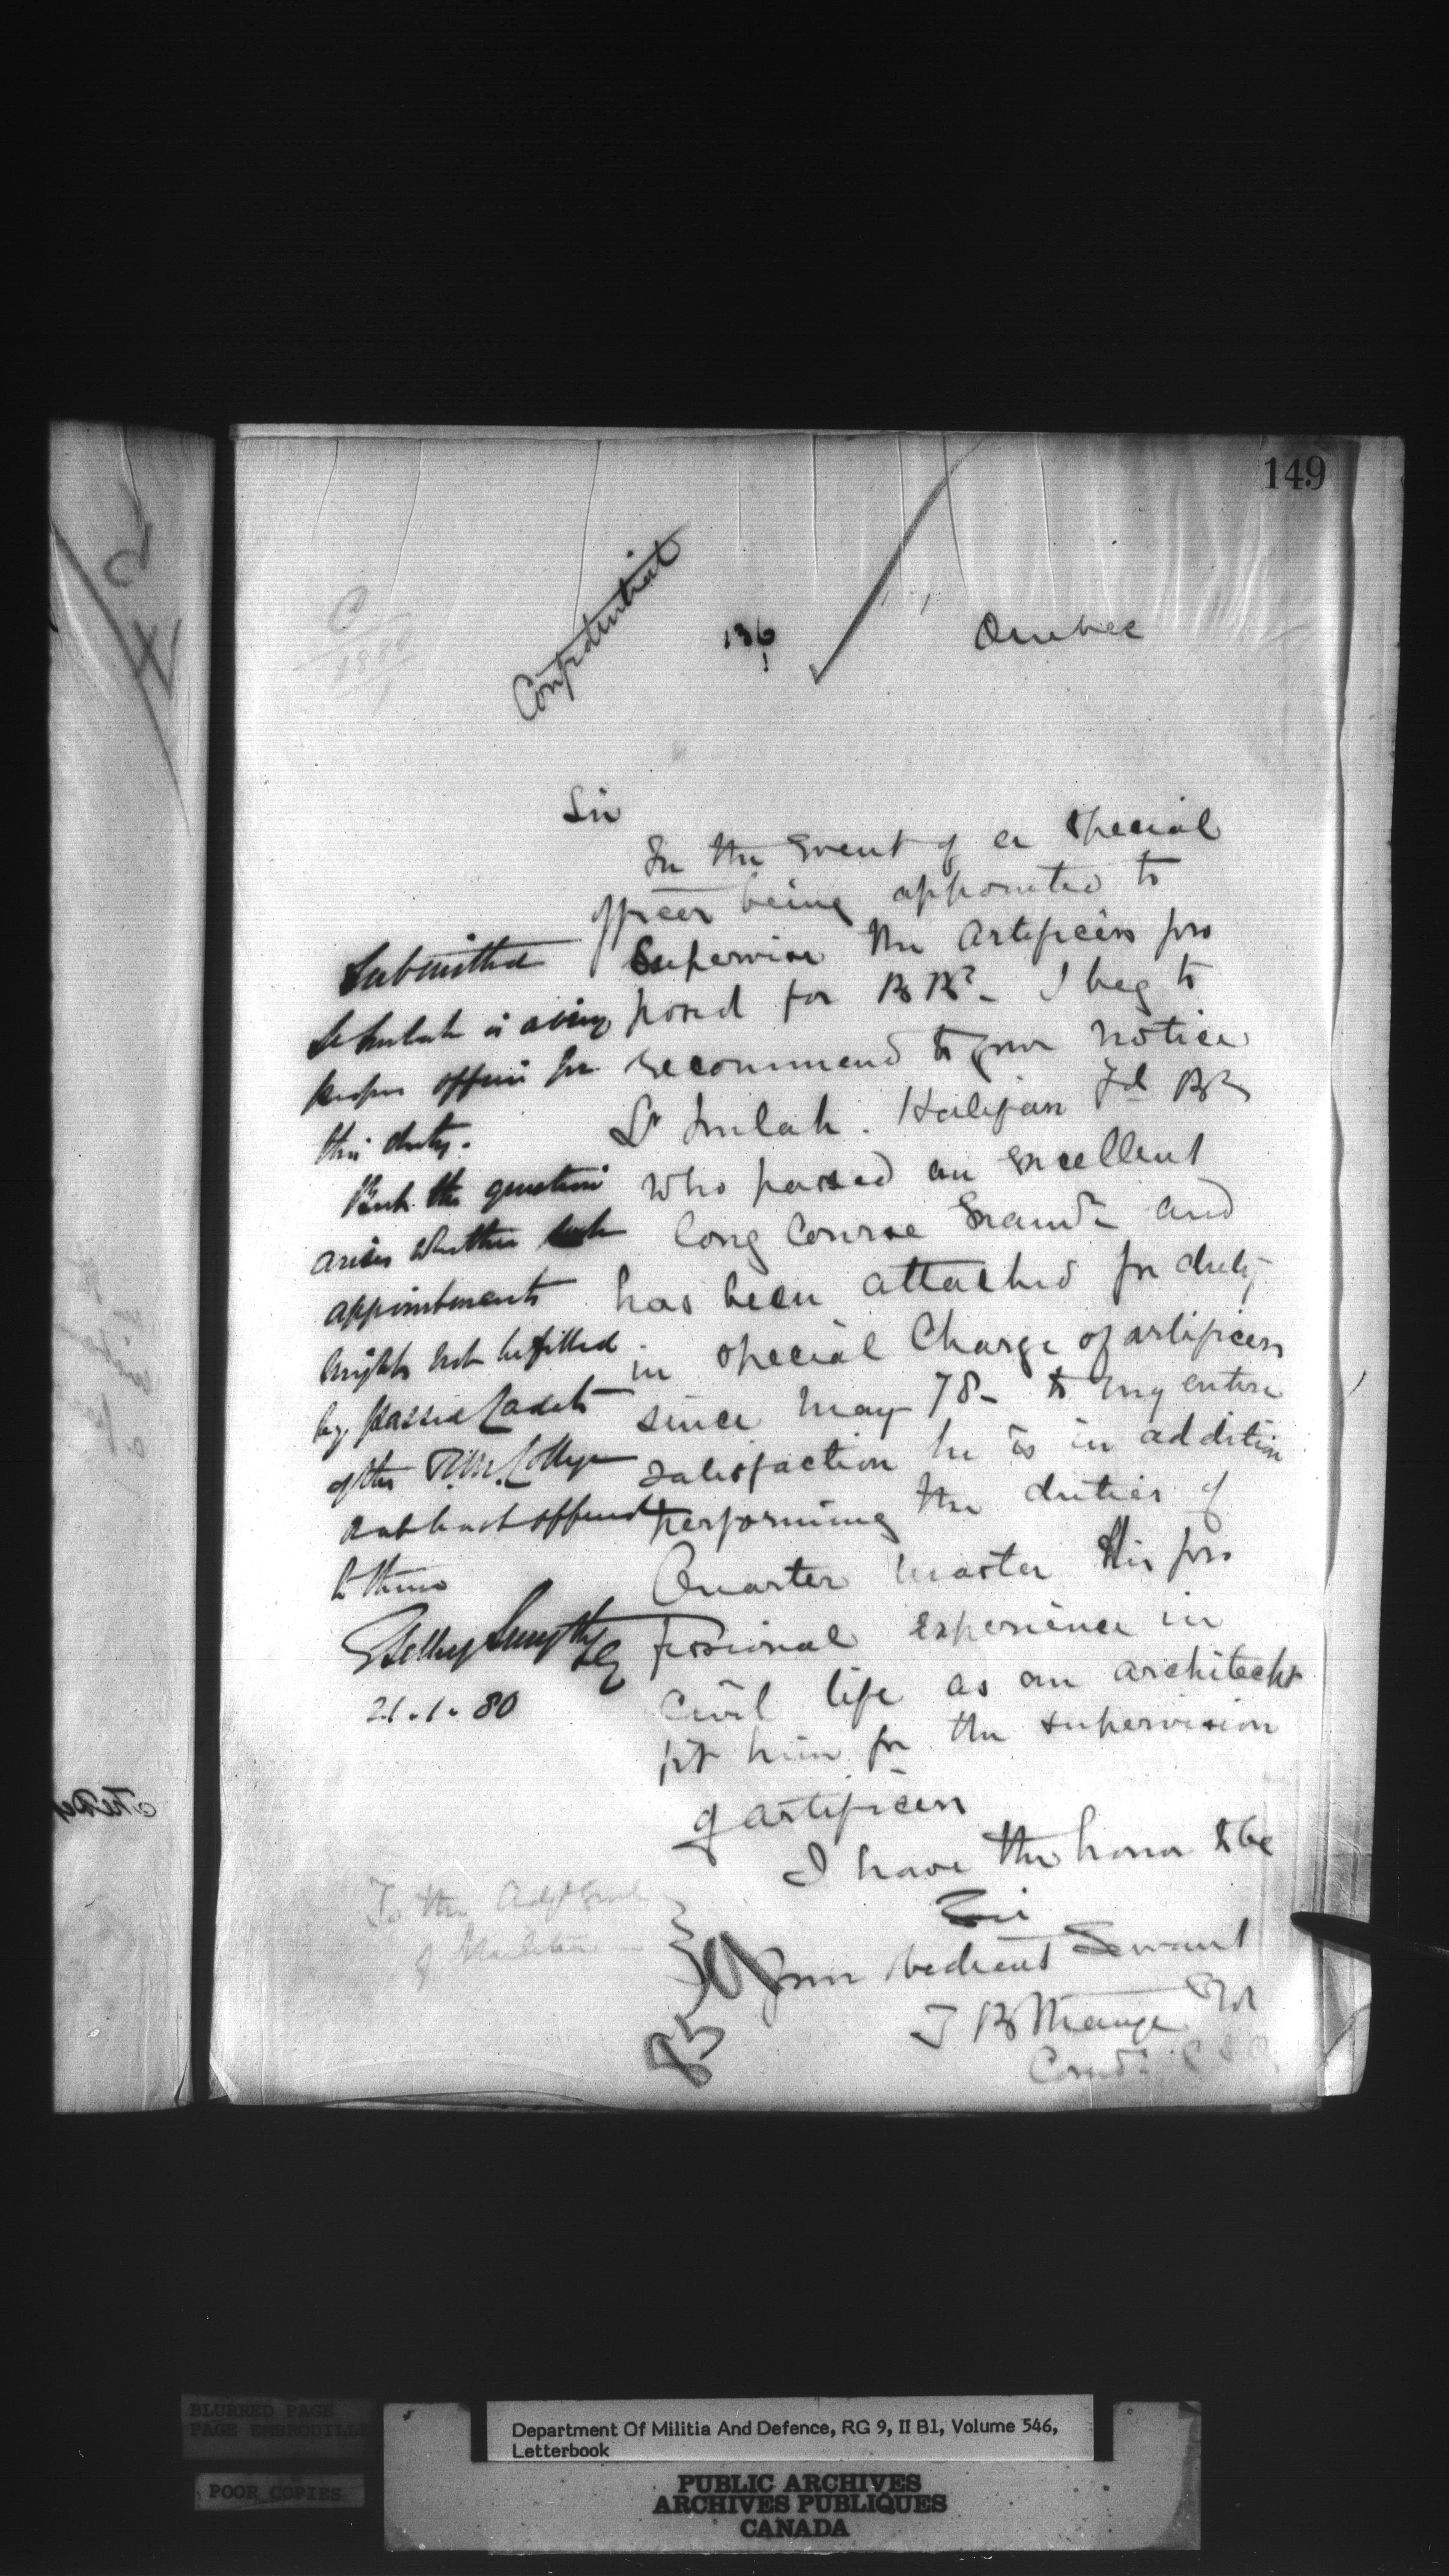 149
Confidential
136
1
Quebec
Sir
In the Event of a Special
officer being appointed to
Supervise the Artificers pro
posed for B By - I beg to
recommend to your notice
Lt Halifax Fd By
who passed an Excellent
long Course and
has been attached for duty
in special Charge of artificers
since May 78 - to my entire
satisfaction he is in addition
performing the duties of
Quarter Master His pro
fessional experience in
Civil life as an architect
fit him for the supervision
of artificers
I have the honor to be
Sir
Your obedient Servant
T B Strange Col
Comdt
To the Adjt Genl
of Militia
85
Submitted
Lt is a very
proper officer for
this duty.
But the question
arises whether such
appointments
might not be filled
by passed Cadets
of the R.M. College
or at least offered
to them
E Selby Smyth LG
21.1.80
BLURRED PAGE
PAGE EMBROUILLE
POOR COPIES
Department Of Militia And Defence, RG 9, II B1, Volume 546,
Letterbook
PUBLIC ARCHIVES
ARCHIVES PUBLIQUES
CANADA